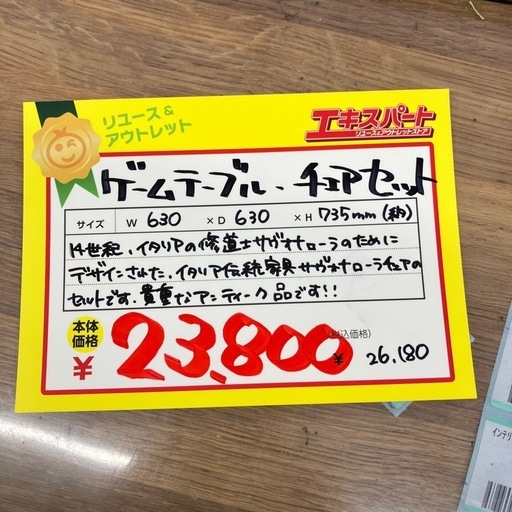 リユース&
アウトレット
エキスパート
リユース&アウトレットストア
ゲームテーブル、チェアセット
サイズ W 630 ×D 630 ×H 735mm (約)
14世紀、イタリアの修道士サヴォナローラのために
デザインされた、イタリア伝統家具サヴォナローラチェアの
セットです。貴重なアンティーク品です!!
本体価格 ¥23,800
(税込価格) ¥ 26,180
インテリ